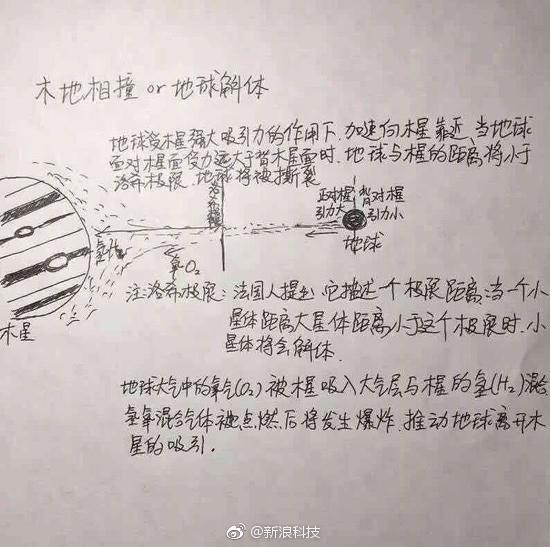 木地相撞 or 地球解体
地球受木星强大吸引力的作用下,加速向木星靠近,当地球
面对木星面受力远大于背木星面时,地球与木星的距离将小于
洛希极限,地球将被撕裂
洛希极限
正对木星 背对木星
引力大 引力小
地球
氢H₂
氧O₂
木星
注:洛希极限:法国人提出,它描述一个极限距离:当一个小
星体距离大星体距离小于这个极限时,小
星体将会解体.
地球大气中的氧气(O₂)被木星吸入大气层与木星的氢(H₂)混合
氢氧混合气体被点燃后将发生爆炸,推动地球离开木
星的吸引.
@新浪科技